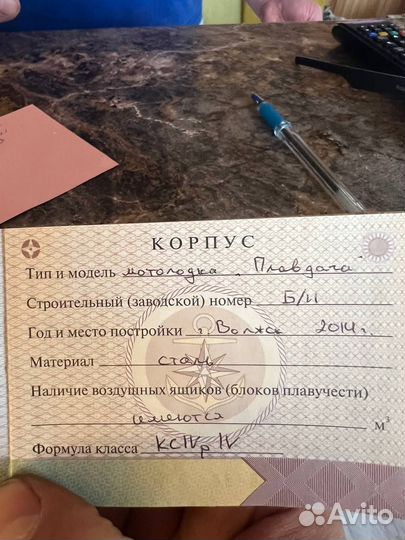 КОРПУС
Тип и модель мотолодка „Плавдача"
Строительный (заводской) номер Б/Н
Год и место постройки г. Волжск 2014 г.
Материал сталь
Наличие воздушных ящиков (блоков плавучести)
имеются м³
Формула класса
Avito